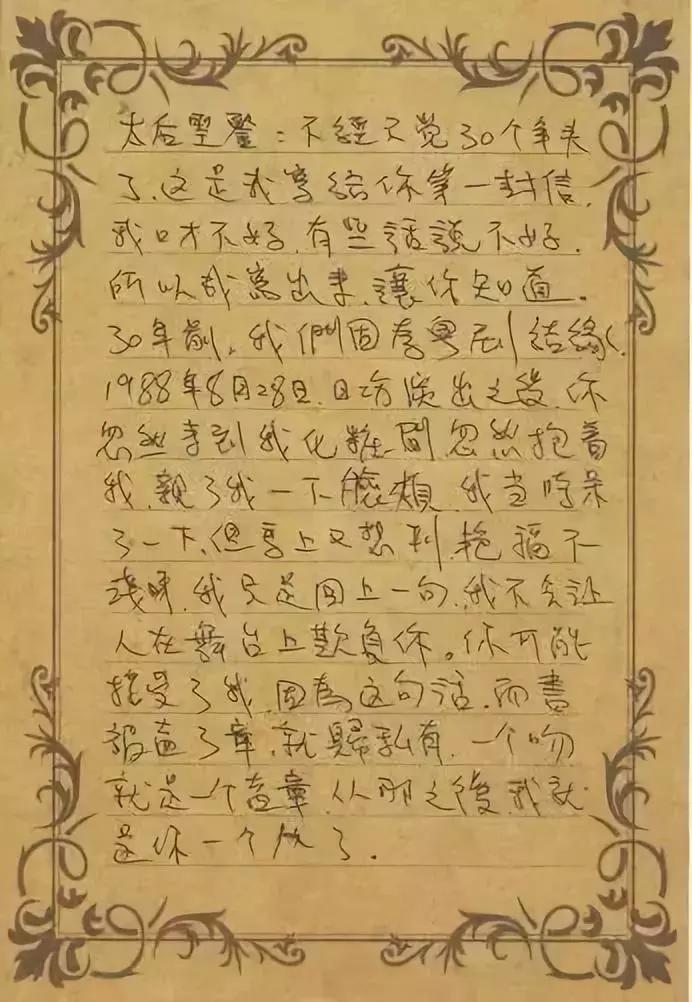 太后聖鑒：不經不覺30个年头
了，这是我寫給你第一封信，
我口才不好，有些話說不好，
所以我寫出來，讓你知道。
30年前，我們因為粵剧結緣，
1988年8月28日，日場演出之後，你
忽然來到我化粧間，忽然抱着
我，親了我一下臉頰，我当時呆
了一下，但馬上又想到，艳福不
淺呀，我只是回上一句，我不会让
人在舞台上欺負你。你可能
接受了我，因為这句話，而書
報蓋了章，就歸私有，一个吻
就是一个蓋章，从那之後，我就
是你一个人了．